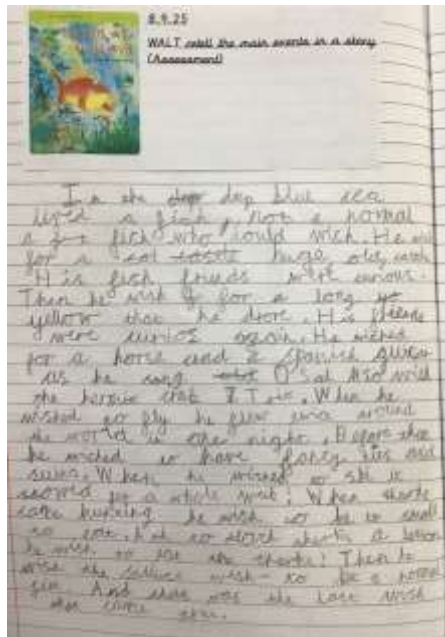 8.9.25
WALT retell the main events in a story
(Assessment)
In the dep blue sea
lived a fish, not a normal
a fish who could wish. He wish
for a huge old
His fish friends were curious.
Then he wish for a long
yellow that he drove. His friends
were curios again. He wished
for a horse and a spanish
as he song O Sol
the hermit crab. When he
wished to fly he flew around
the world in one night. Before that
he wished to have fancy ties and
suits. When he wished to ski it
snowd for a whole week! When sharks
came hunting he wish to be to small
to eat. And to teach sharks a lesson
he wish to the sharks! Then he
wish the wish - to be a normal
fish. And that was the last wish
that came true.